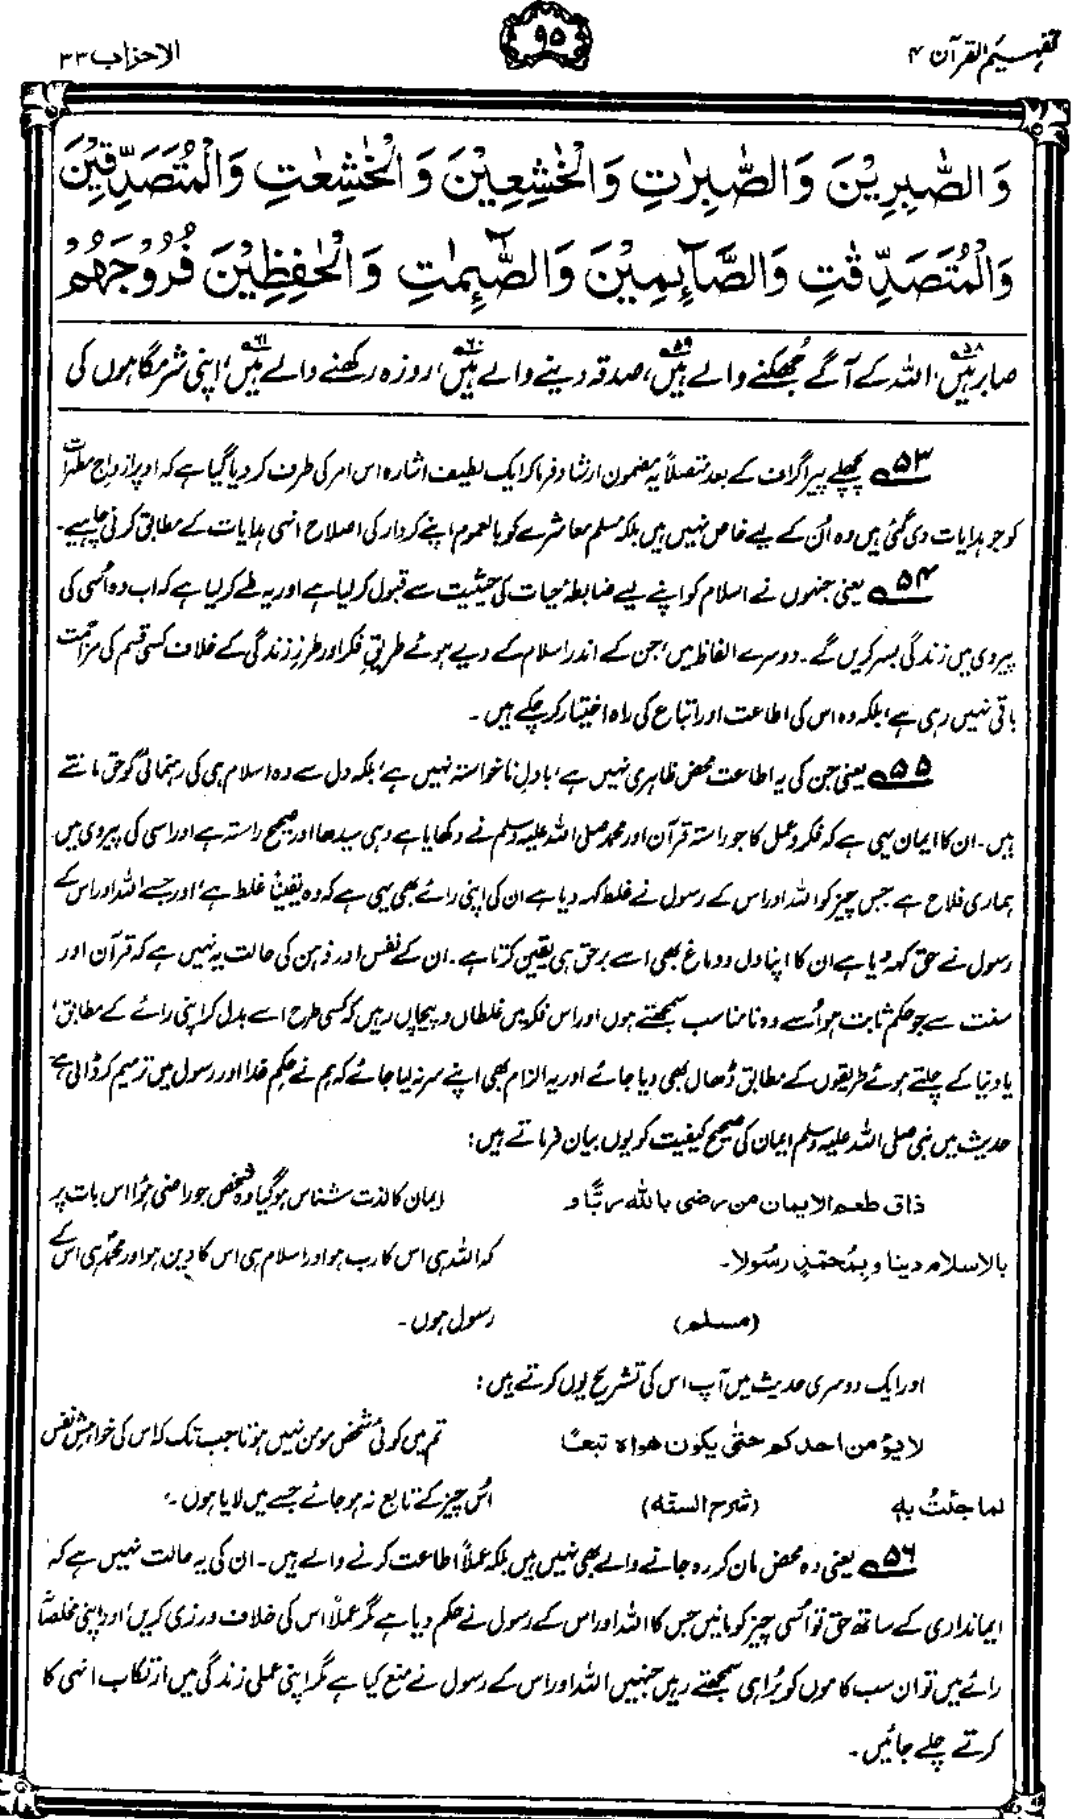 تفہیم القرآن ۴
۹۵
الاحزاب ۳۳
وَالصّٰبِرِیْنَ وَالصّٰبِرٰتِ وَالْخٰشِعِیْنَ وَالْخٰشِعٰتِ وَالْمُتَصَدِّقِیْنَ
وَالْمُتَصَدِّقٰتِ وَالصَّآئِمِیْنَ وَالصّٰٓئِمٰتِ وَالْحٰفِظِیْنَ فُرُوْجَهُمْ
صابر ہیں،۵۸ اللہ کے آگے جُھکنے والے ہیں،۵۹ صدقہ دینے والے ہیں،۶۰ روزہ رکھنے والے ہیں،۶۱ اپنی شرمگاہوں کی
۵۳ پچھلے پیراگراف کے بعد متصلاً یہ مضمون ارشاد فرما کر ایک لطیف اشارہ اس امر کی طرف کر دیا گیا ہے کہ اوپر ازواجِ مطہرات
کو جو ہدایات دی گئی ہیں وہ اُن کے لیے خاص نہیں ہیں بلکہ مسلم معاشرے کو بالعموم اپنے کردار کی اصلاح انہی ہدایات کے مطابق کرنی چاہیے۔
۵۴ یعنی جنہوں نے اسلام کو اپنے لیے ضابطۂ حیات کی حیثیت سے قبول کر لیا ہے اور یہ طے کر لیا ہے کہ اب وہ اُسی کی
پیروی میں زندگی بسر کریں گے۔ دوسرے الفاظ میں، جن کے اندر اسلام کے دیے ہوئے طریقِ فکر اور طرزِ زندگی کے خلاف کسی قسم کی مزاحمت
باقی نہیں رہی ہے، بلکہ وہ اس کی اطاعت اور اتباع کی راہ اختیار کر چکے ہیں۔
۵۵ یعنی جن کی یہ اطاعت محض ظاہری نہیں ہے، بادلِ ناخواستہ نہیں ہے، بلکہ دل سے وہ اسلام ہی کی رہنمائی کو حق مانتے
ہیں۔ ان کا ایمان یہی ہے کہ فکر و عمل کا جو راستہ قرآن اور محمد صلی اللہ علیہ وسلم نے دکھایا ہے وہی سیدھا اور صحیح راستہ ہے اور اسی کی پیروی میں
ہماری فلاح ہے جس چیز کو اللہ اور اس کے رسول نے غلط کہہ دیا ہے ان کی اپنی رائے بھی یہی ہے کہ وہ یقیناً غلط ہے، اور جسے اللہ اور اس کے
رسول نے حق کہہ دیا ہے ان کا اپنا دل و دماغ بھی اسے برحق ہی یقین کرتا ہے۔ ان کے نفس اور ذہن کی حالت یہ نہیں ہے کہ قرآن اور
سنت سے جو حکم ثابت ہو اُسے وہ نامناسب سمجھتے ہوں اور اس فکر میں غلطاں و پیچاں رہیں کہ کسی طرح اسے بدل کر اپنی رائے کے مطابق،
یا دنیا کے چلتے ہوئے طریقوں کے مطابق ڈھال بھی دیا جائے اور یہ الزام بھی اپنے سر نہ لیا جائے کہ ہم نے حکمِ خدا اور رسول میں ترمیم کر ڈالی ہے
حدیث میں نبی صلی اللہ علیہ وسلم ایمان کی صحیح کیفیت کو یوں بیان فرماتے ہیں:
ذاق طعم الایمان من رضی باللہ ربًّا و
بالاسلام دینا و بمُحمّدٍ رسُولا۔
(مسلم)
ایمان کا لذت شناس ہو گیا وہ شخص جو راضی ہُوا اس بات پر
کہ اللہ ہی اس کا رب ہو اور اسلام ہی اس کا دین ہو اور محمدؐ ہی اس کے
رسول ہوں۔
اور ایک دوسری حدیث میں آپ اس کی تشریح یوں کرتے ہیں:
لا یؤمن احدکم حتّٰی یکون ھواہ تبعًا
لما جئتُ بہٖ
(شرح السنّہ)
تم میں کوئی شخص مومن نہیں ہوتا جب تک کہ اس کی خواہشِ نفس
اُس چیز کے تابع نہ ہو جائے جسے میں لایا ہوں۔"
۵۶ یعنی وہ محض مان کر رہ جانے والے بھی نہیں ہیں بلکہ عملاً اطاعت کرنے والے ہیں۔ ان کی یہ حالت نہیں ہے کہ
ایمانداری کے ساتھ حق تو اُسی چیز کو مانیں جس کا اللہ اور اس کے رسول نے حکم دیا ہے مگر عملاً اس کی خلاف ورزی کریں، اور اپنی مخلصانہ
رائے میں تو ان سب کاموں کو بُرا ہی سمجھتے رہیں جنہیں اللہ اور اس کے رسول نے منع کیا ہے مگر اپنی عملی زندگی میں ارتکاب انہی کا
کرتے چلے جائیں۔